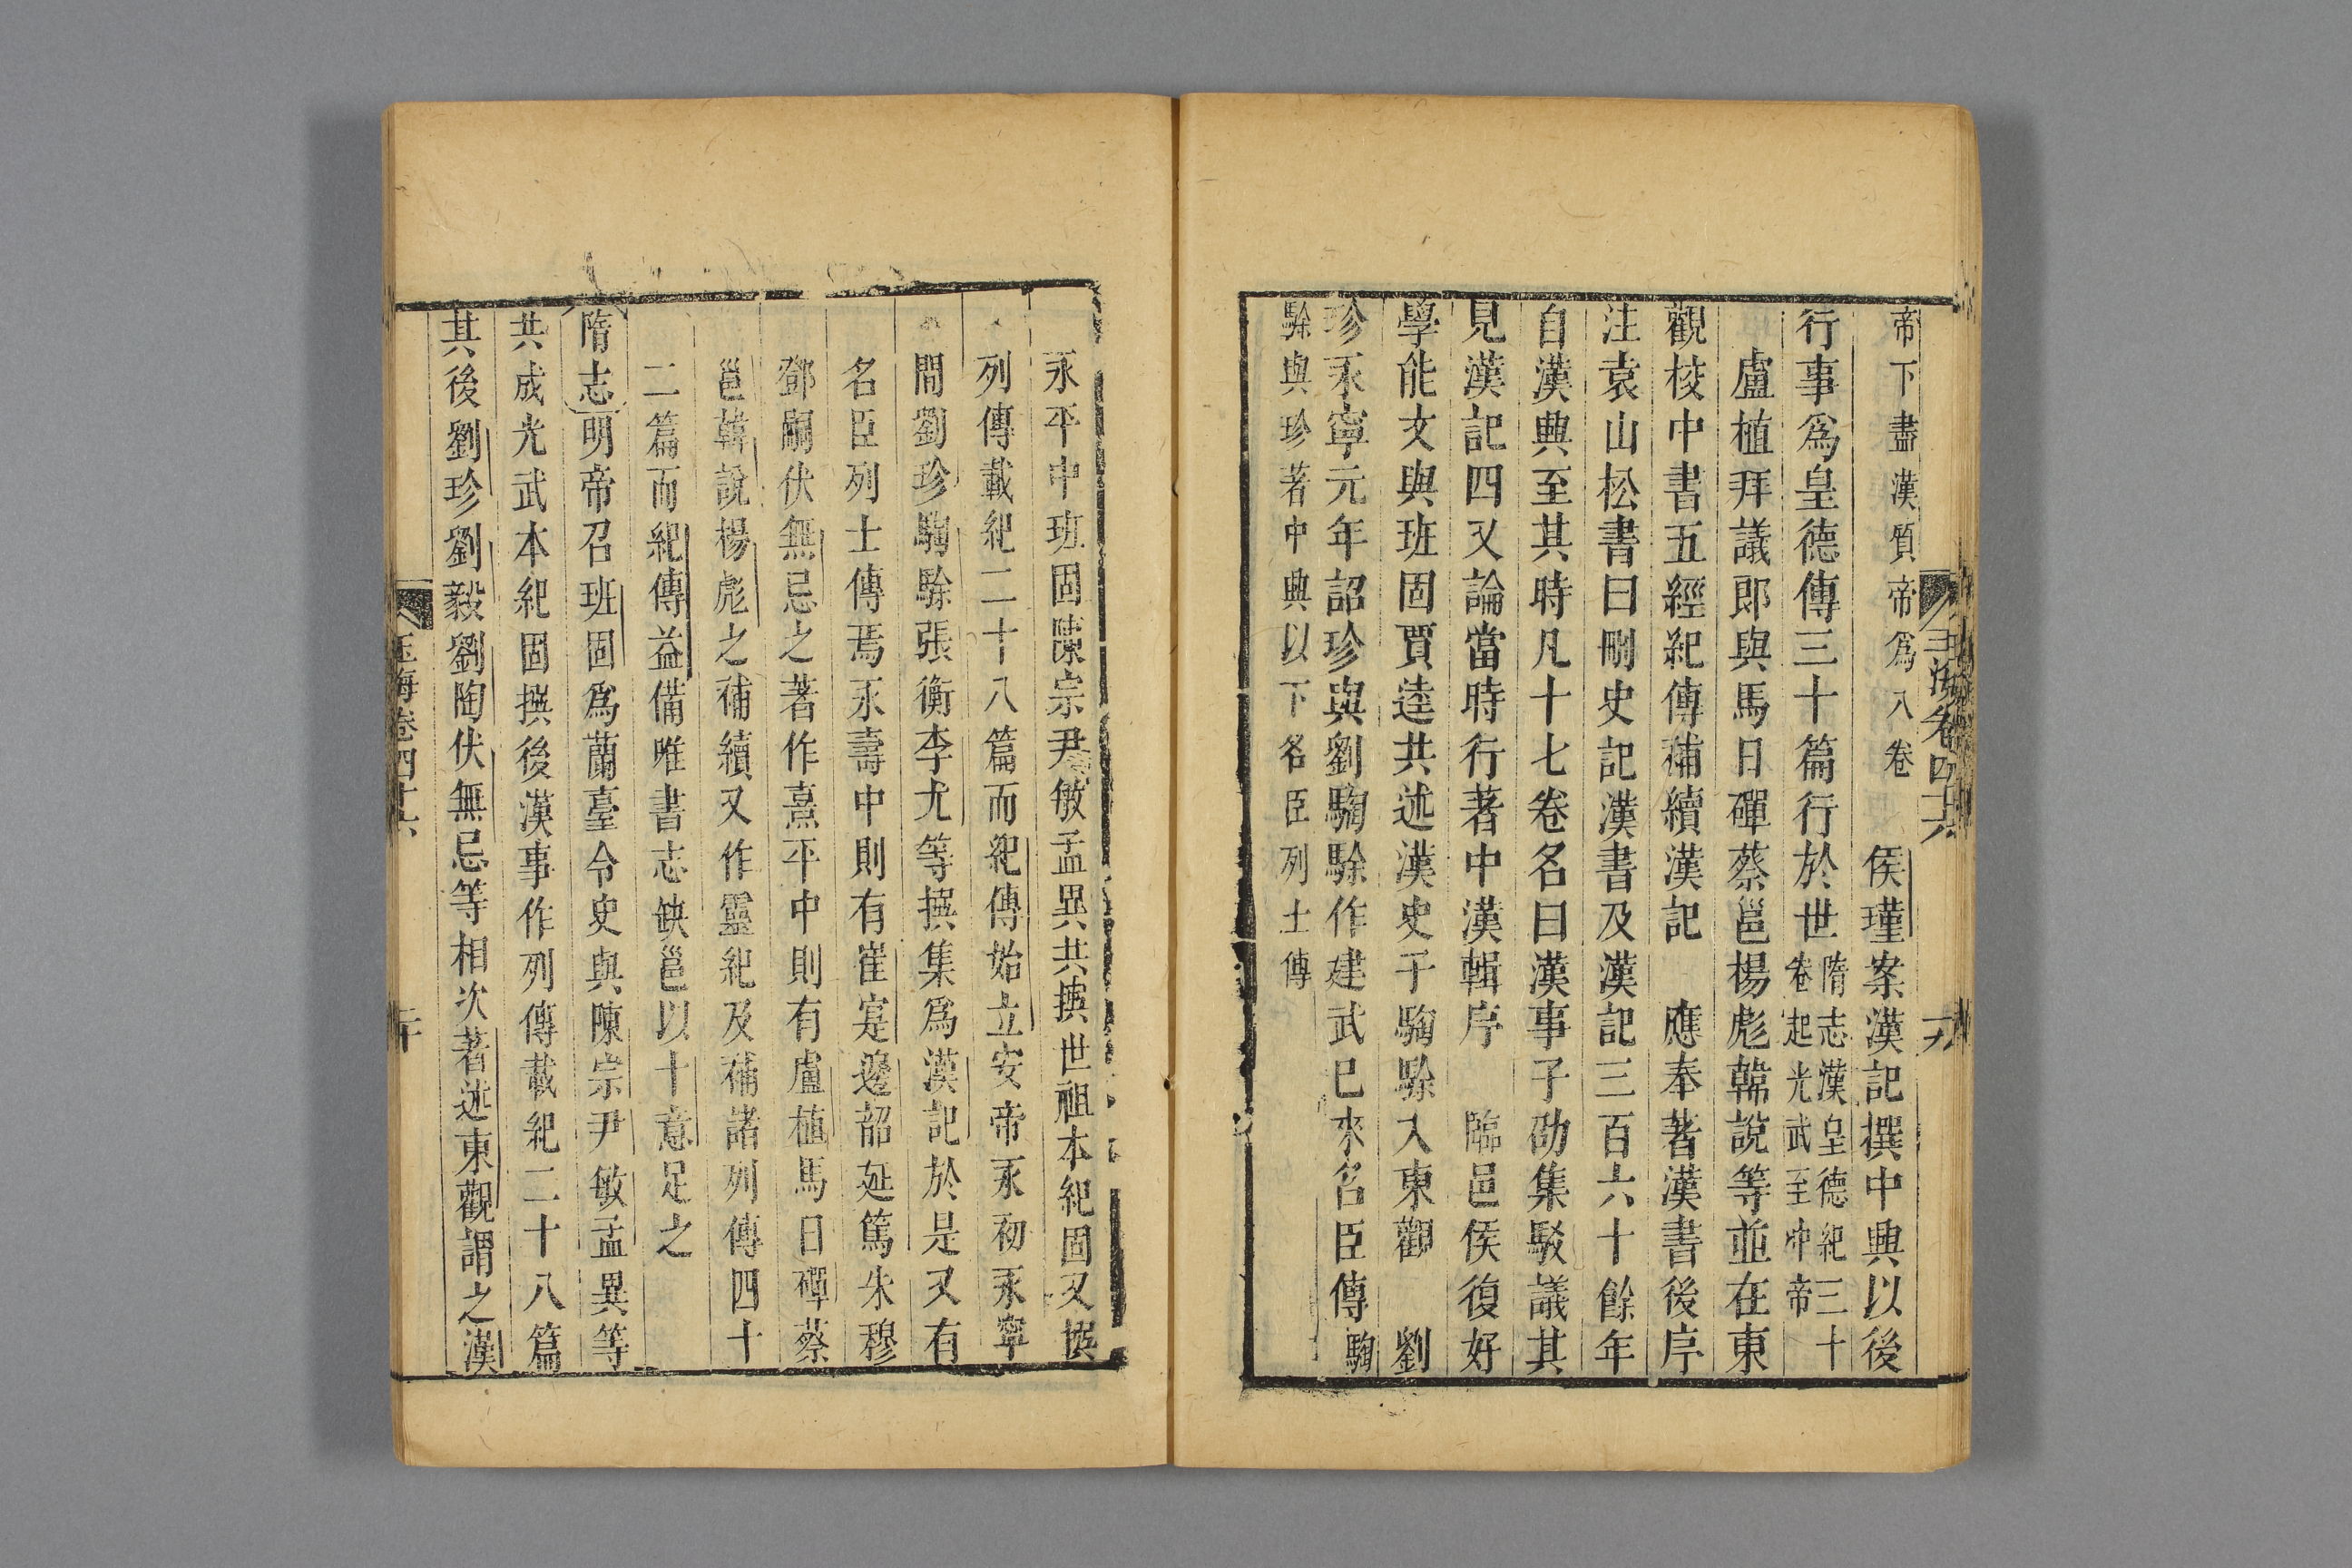 玉海卷四十六
十九
帝下盡漢質帝爲八卷
侯瑾案漢記撰中興以後
行事爲皇德傳三十篇行於世隋志漢皇德紀三十
卷起光武至冲帝
盧植拜議郎與馬日磾蔡邕楊彪韓說等並在東
觀校中書五經紀傳補續漢記　應奉著漢書後序
注袁山松書曰刪史記漢書及漢記三百六十餘年
自漢興至其時凡十七卷名曰漢事子劭集駁議其
見漢記四又論當時行著中漢輯序　臨邑侯復好
學能文與班固賈逵共述漢史子騊駼入東觀　劉
珍永寧元年詔珍與劉騊駼作建武已來名臣傳騊
駼與珍著中興以下名臣列士傳
永平中班固陳宗尹敏孟異共撰世祖本紀固又撰
列傳載紀二十八篇而紀傳始立安帝永初永寧
間劉珍騊駼張衡李尤等撰集爲漢記於是又有
名臣列士傳焉永壽中則有崔寔邊韶延篤朱穆
鄧嗣伏無忌之著作熹平中則有盧植馬日磾蔡
邕韓說楊彪之補續又作靈紀及補諸列傳四十
二篇而紀傳益備唯書志缺邕以十意足之
隋志明帝召班固爲蘭臺令史與陳宗尹敏孟異等
共成光武本紀固撰後漢事作列傳載紀二十八篇
其後劉珍劉毅劉陶伏無忌等相次著述東觀謂之漢
玉海卷四十六
二十